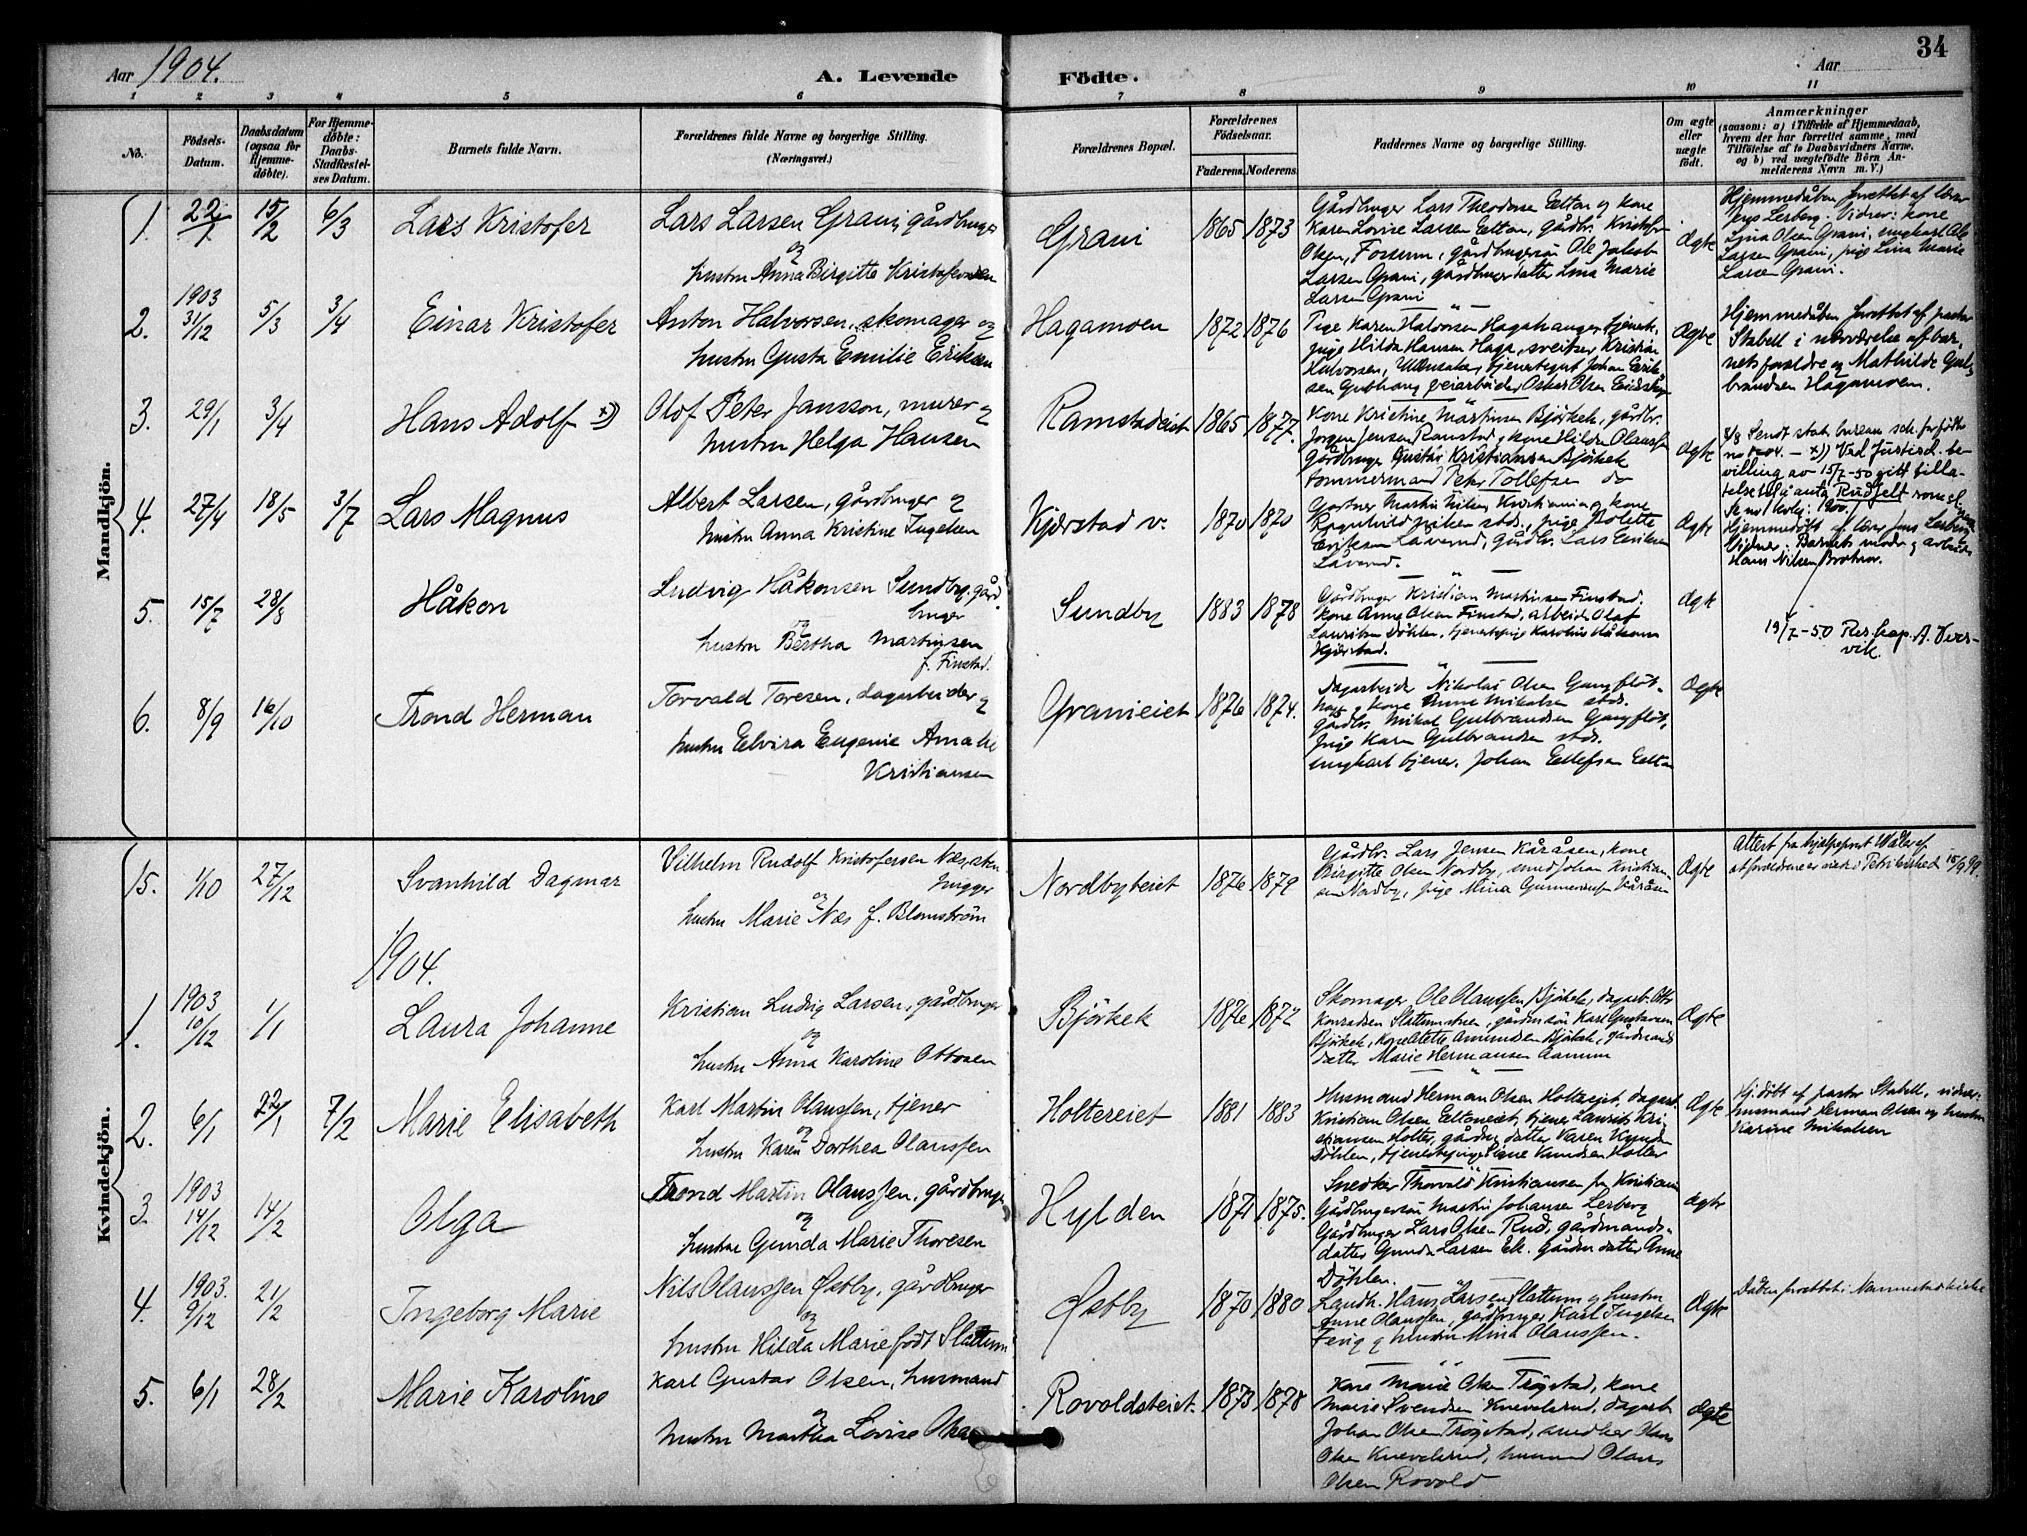 34
Aar 1904.
A. Levende Födte.
Aar
1 2 3 4 5 6 7 8 9 10 11
No.
Födsels-Datum.
Daabsdatum (ogsaa for Hjemme-döbte).
For Hjemme-döbte: Daabs-Stadfæstel-ses Datum.
Barnets fulde Navn.
Forældrenes fulde Navne og borgerlige Stilling. (Næringsvei.)
Forældrenes Bopæl.
Forældrenes Födselsaar.
Faderens. Moderens.
Faddernes Navne og borgerlige Stilling.
Om ægte eller uægte födt.
Anmærkninger
(saasom: a) i Tilfælde af Hjemmedaab, hvem der har forrettet samme, med Tilföielse af to Daabsvidners Navne, og b) ved uægtefödte Börn An-melderens Navn m. V.)
Mandkjön.
1. 22/1 15/2 6/3 Lars Kristofer
Lars Larsen Grani, gårdbruger
og
hustru Anna Birgitte Kristofersen
Grani 1865 1873
Gårdbruger Lars Theodorsen Eltan og kone
Karen Lovise Larsen Eltan, gårdbr. Kristofer
Olsen, Fossum, gårdbrugersön Ole Jakob
Larsen Grani, gårdbrugerdatter Lina Marie
Larsen Grani
Ægte
Hjemmedåben forrettet af lærer
Jens Lerberg. Vidner: kone
Lina Olsen Grani, ungkarl Ole
Larsen Grani, pige Lina Marie
Larsen Grani.
2. 1903 31/12 5/3 3/4 Einar Kristofer
Anton Halvorsen, skomager og
hustru Gusta Emilie Eriksen
Hagamoen 1872 1876
Pige Karen Halvorsen Hagahanger, tjeneste-
pige Hilda Hansen Haga, sveitser Kristian
Halvorsen, Ullensaker, tjenestegut Johan Erik-
sen Gubhaug, veiarbeider Oskar Olsen
Ægte
Hjemmedåben forrettet af pastor
Stabell i nærværelse af bar-
nets forældre og Mathilde Gul-
brandsen Hagamoen.
3. 29/1 3/4 Hans Adolf x)
Olof Peter Jansson, murer og
hustru Helga Hansen
Ramstadeiet 1865 1877.
Kone Kristine Martinsen Björkek, gårdbr.
Jörgen Jensen Ramstad og kone Hilda Olaussen
Gårdbruger Gustav Kristiansen Björkek
tömmermand Peter Tollefsen do
Ægte
Sendt stat. bureau
x) Ved Justisd. be-
villing av 15/7-50 gitt tilla-
telse til å anta Rudfelt som
19/7-50 Res. kap. A. Vers-
vik.
4. 27/4 18/5 3/7 Lars Magnus
Albert Larsen, gårdbruger og
hustru Anna Kristine Ingelsen
Kjærstad v. 1870 1870
Gartner Martin Kristiania og kone
Ragnhild stds., pige Bolette
Eriksen Laverud, gårdbr. Lars Eriksen
Laverud.
Ægte
Hjemmedöbt af lærer Jens Lerberg
Vidner: Barnets moder og
Hans Nilsen Bråten.
5. 15/7 28/8 Håkon
Ludvig Håkonsen Sundby, gård-
bruger
og
hustru Bertha Martinsen
f. Finstad.
Sundby 1883 1878
Gårdbruger Kristian Martinsen Finstad.
kone Anne Olsen Finstad, arbeider Olaf
Lauritsen Döhlen, tjenestepige Karoline Håkonsen
Kjærstad.
Ægte
6. 8/9 16/10 Trond Herman
Torvald Toresen, dagarbeider og
hustru Elvira Eugenie Amalie
Kristiansen
Granieiet 1876 1874.
Dagarbeider Nikolai Olsen Gangflöt,
og kone Anne Mikalsen stds.
gårdbr. Mikal Gulbrandsen Gangflöt,
pige Karen Gulbrandsen stds.
ungkarl tjener Johan Ellefsen Eltan
Ægte
Kvindekjön.
15. 1/10 27/12 Svanhild Dagmar
Vilhelm Rudolf Kristofersen Næs, sten-
hugger
og
hustru Marie Næs f. Blomström
Nordbyeiet 1876 1879
Gårdbr. Lars Jensen Kåråsen, kone
Birgitte Olsen Nordby, smed Johan Kristian-
sen Nordby, pige Mina Gunneriusen Kåråsen
Ægte
Attest fra hjelpeprest
at forældrene er viet i Petri kirke 15/9 99.
1904.
1. 1903 10/12 1/1 Laura Johanne
Kristian Ludvig Larsen, gårdbruger
og
hustru Anna Karoline Ottosen
Björkek 1876 1872
Skomager Ole Olaussen Björkek, dagarb. Otto
Konradsen Slattumstuen, gårdmsön Karl Gustavsen
Björkek, kone Olette Amundsen Björkek, gårdmands-
datter Marie Hermansen Aamum
Ægte
2. 6/1 22/1 7/2 Marie Elisabeth
Karl Martin Olaussen, tjener
og
hustru Karen Dorthea Olaussen
Holtereiet 1881 1883
Husmand Herman Olsen Holtereiet, dagarb.
Kristian Olsen Elteneiet, tjener Laurits Kri-
stiansen Holter, gårdm. datter Karen Knudsen
Döhlen, tjenestepige Signe Knudsen Holter
Ægte
Hj. döbt af pastor Stabell, vidner:
husmand Herman Olsen og hustru
Karine Mikalsen
3. 1903 14/12 14/2 Olga
Trond Martin Olaussen, gårdbruger
og
hustru Gunda Marie Thoresen
Hylden 1871 1875.
Snedker Thorvald Kristiansen fra Kristiania
Gårdbrugersön Martin Johansen Lerberg
Gårdbruger Lars Olsen Rud, gårdmands-
datter Gunda Larsen Ek. gårdm. datter Anne
Döhlen.
Ægte
4. 1903. 9/12 21/2 Ingeborg Marie
Nils Olaussen Østby, gårdbruger
og
hustru Hilda Marie födt Slattum
Østby 1870 1880
Landh. Hans Larsen Slattum og hustru
Anne Olaussen, gårdbruger Karl Ingelsen
Fevig og hustru Mina Olaussen.
Ægte
Dåben forrettet i Nannestad kirke
5. 6/1 28/2 Marie Karoline
Karl Gustav Olsen, husmand
og
hustru Martha Lovise Olsen
Rovoldseiet. 1873 1878
Kone Marie Olsen Trögstad, kone
Marie Svendsen Knevelsrud, dagarb.
Johan Olsen Trögstad, snedker Olaus
Olsen Knevelsrud, husmand Olaus
Olsen Rovold
Ægte